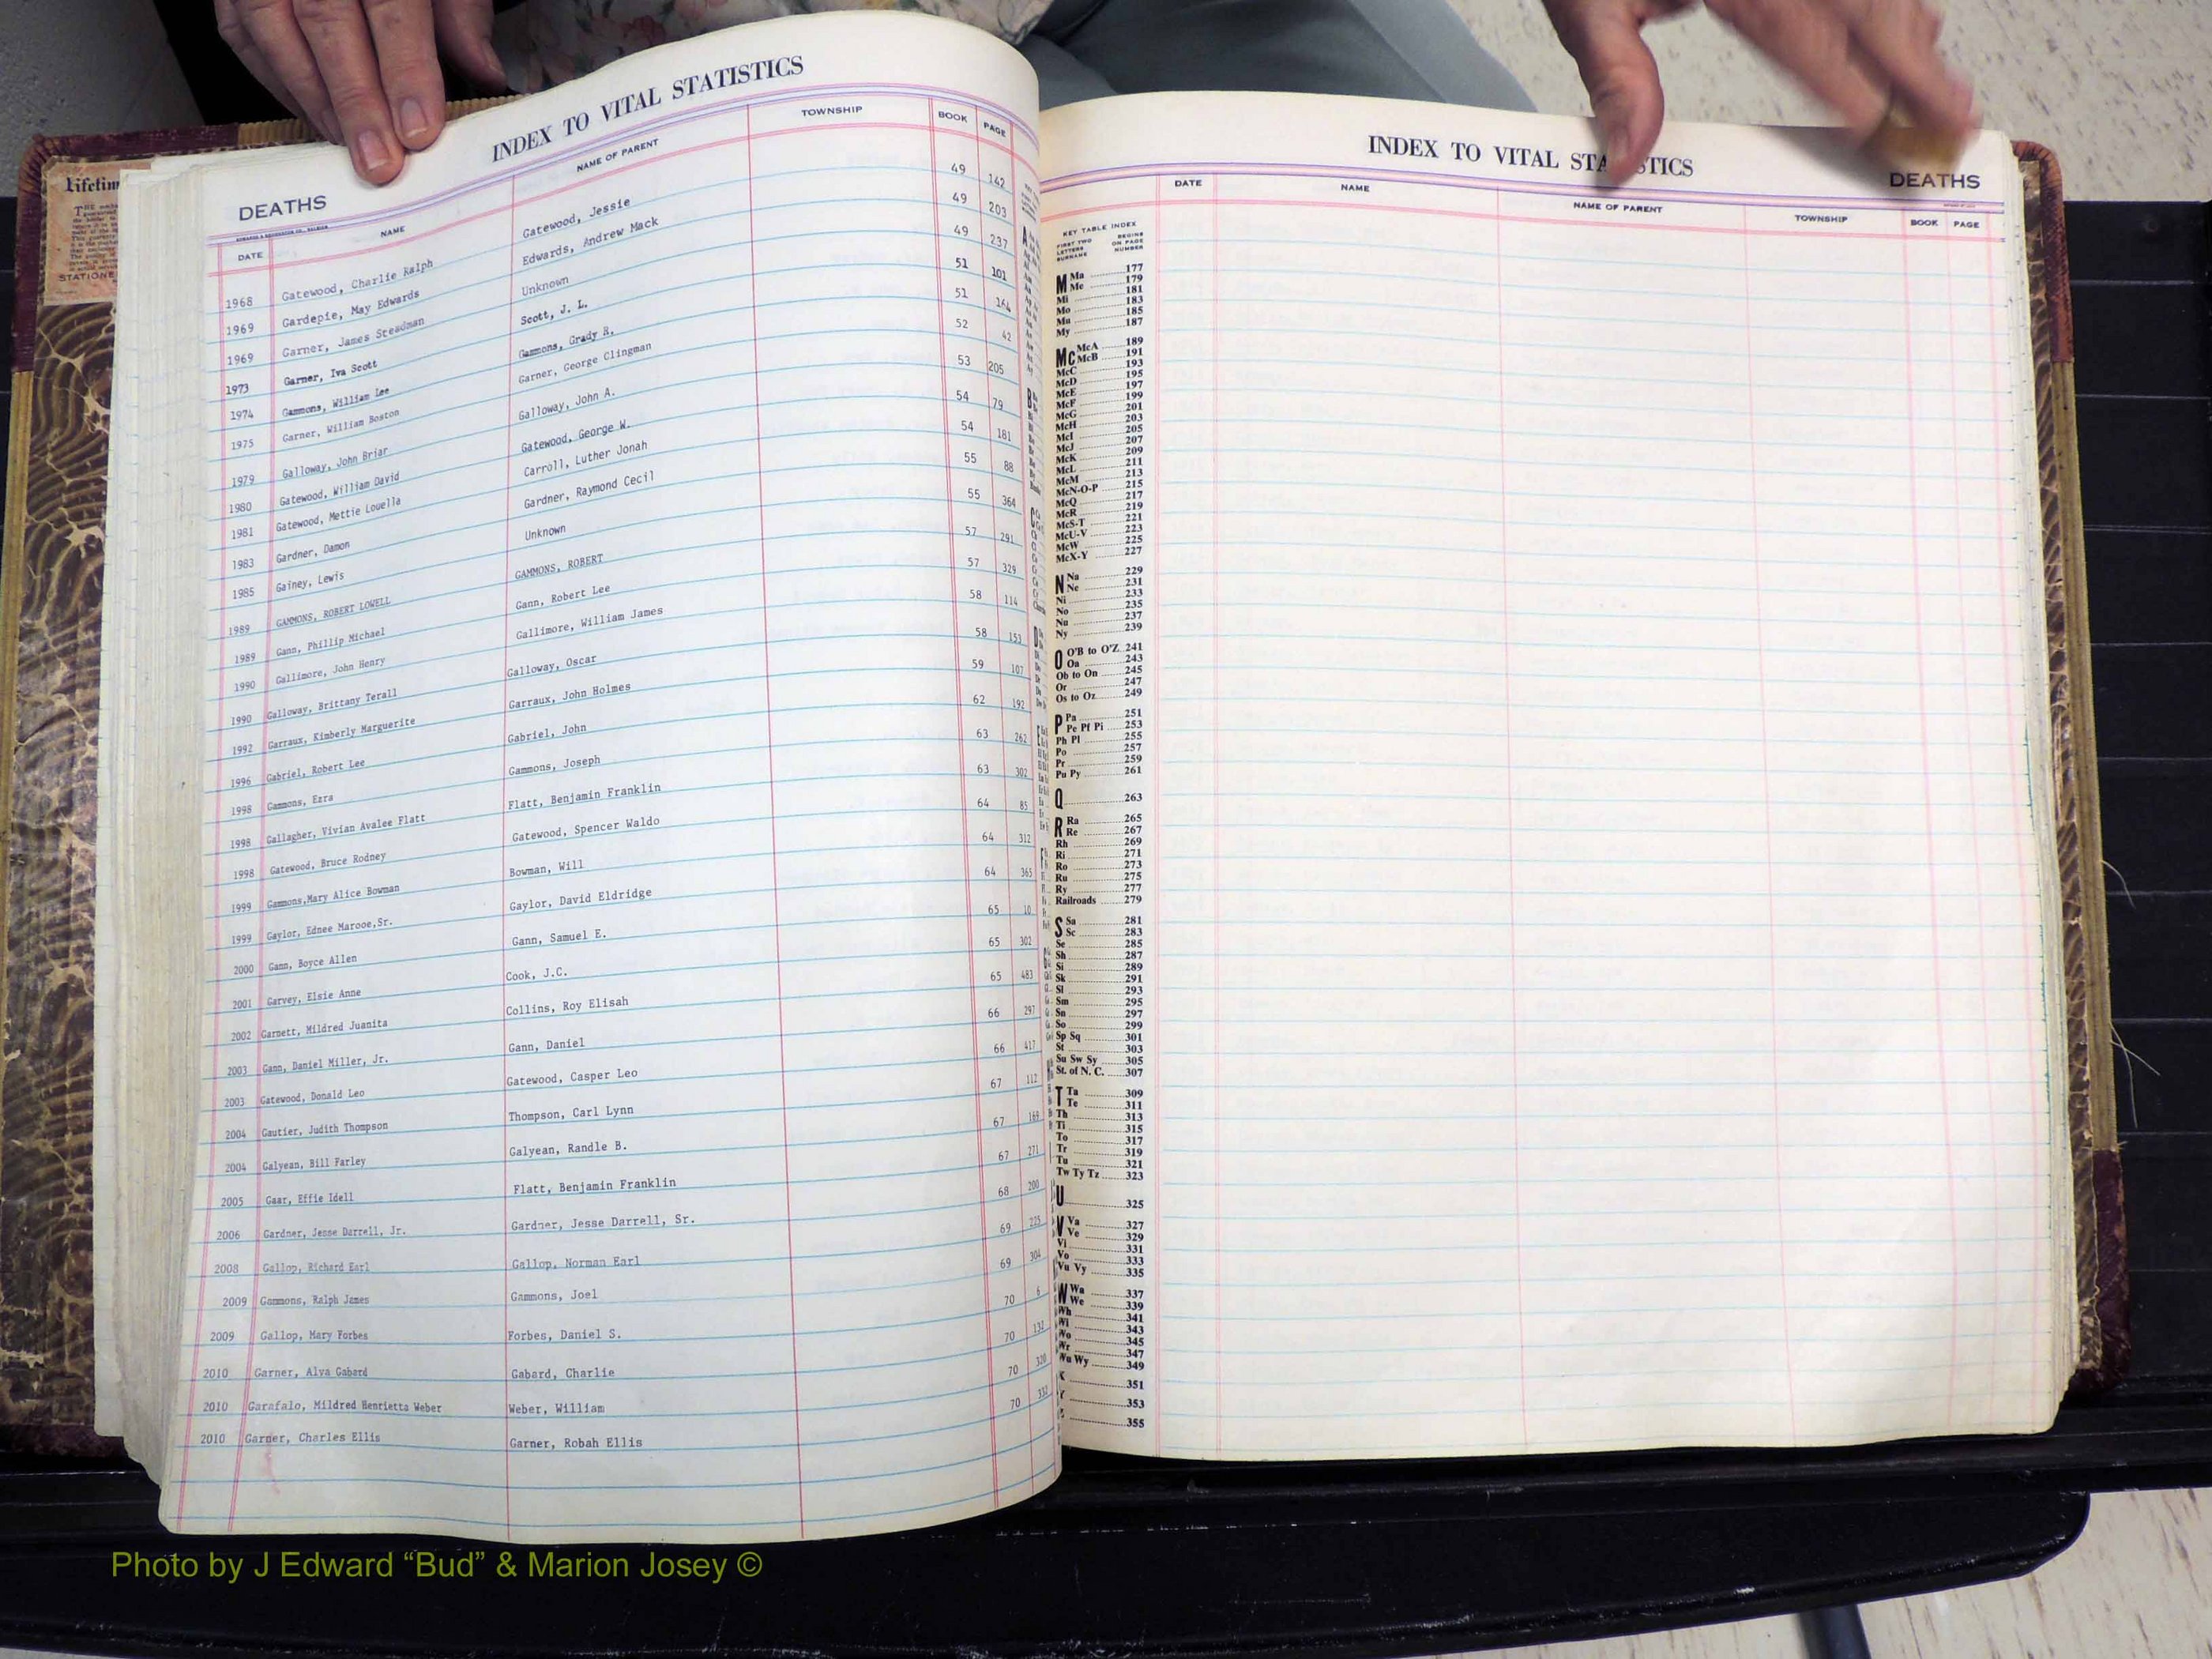 Lifetim
STATIONE
INDEX TO VITAL STATISTICS
DEATHS
DATE NAME NAME OF PARENT TOWNSHIP BOOK PAGE
1968 Gatewood, Charlie Ralph Gatewood, Jessie 49 142
1969 Gardepie, May Edwards Edwards, Andrew Mack 49 203
1969 Garner, James Steadman Unknown 49 237
1973 Garner, Iva Scott Scott, J. L. 51 101
1974 Gammons, William Lee Gammons, Grady R. 51 164
1975 Garner, William Boston Garner, George Clingman 52 42
1979 Galloway, John Briar Galloway, John A. 53 205
1980 Gatewood, William David Gatewood, George W. 54 79
1981 Gatewood, Mettie Louella Carroll, Luther Jonah 54 181
1983 Gardner, Damon Gardner, Raymond Cecil 55 88
1985 Gainey, Lewis Unknown 55 364
1989 GAMMONS, ROBERT LOWELL GAMMONS, ROBERT 57 291
1989 Gann, Phillip Michael Gann, Robert Lee 57 329
1990 Gallimore, John Henry Gallimore, William James 58 114
1990 Galloway, Brittany Terall Galloway, Oscar 58 153
1992 Garraux, Kimberly Marguerite Garraux, John Holmes 59 107
1996 Gabriel, Robert Lee Gabriel, John 62 192
1998 Gammons, Ezra Gammons, Joseph 63 262
1998 Gallagher, Vivian Avalee Flatt Flatt, Benjamin Franklin 63 302
1998 Gatewood, Bruce Rodney Gatewood, Spencer Waldo 64 85
1999 Gammons,Mary Alice Bowman Bowman, Will 64 312
1999 Gaylor, Ednee Marooe,Sr. Gaylor, David Eldridge 64 365
2000 Gann, Boyce Allen Gann, Samuel E. 65 10
2001 Garvey, Elsie Anne Cook, J.C. 65 302
2002 Garnett, Mildred Juanita Collins, Roy Elisah 65 483
2003 Gann, Daniel Miller, Jr. Gann, Daniel 66 297
2003 Gatewood, Donald Leo Gatewood, Casper Leo 66 417
2004 Gautier, Judith Thompson Thompson, Carl Lynn 67 112
2004 Galyean, Bill Farley Galyean, Randle B. 67 169
2005 Gaar, Effie Idell Flatt, Benjamin Franklin 67 271
2006 Gardner, Jesse Darrell, Jr. Gardner, Jesse Darrell, Sr. 68 200
2008 Gallop, Richard Earl Gallop, Norman Earl 69 225
2009 Gammons, Ralph James Gammons, Joel 69 304
2009 Gallop, Mary Forbes Forbes, Daniel S. 70 6
2010 Garner, Alva Gabard Gabard, Charlie 70 132
2010 Garafalo, Mildred Henrietta Weber Weber, William 70 320
2010 Garner, Charles Ellis Garner, Robah Ellis 70 332
INDEX TO VITAL STA TICS
DEATHS
DATE NAME NAME OF PARENT TOWNSHIP BOOK PAGE
KEY TABLE INDEX
FIRST TWO LETTERS SURNAME BEGINS ON PAGE NUMBER
M Ma 177
Me 179
Mi 181
Mo 183
Mu 185
My 187
Mc McA 189
McB 191
McC 193
McD 195
McE 197
McF 199
McG 201
McH 203
McI 205
McJ 207
McK 209
McL 211
McM 213
McN-O-P 215
McQ 217
McR 219
McS-T 221
McU-V 223
McW 225
McX-Y 227
N Na 229
Ne 231
Ni 233
No 235
Nu 237
Ny 239
O O'B to O'Z 241
Oa 243
Ob to On 245
Or 247
Os to Oz 249
P Pa 251
Pe Pf Pi 253
Ph Pl 255
Po 257
Pr 259
Pu Py 261
Q 263
R Ra 265
Re 267
Rh 269
Ri 271
Ro 273
Ru 275
Ry 277
Railroads 279
S Sa 281
Sc 283
Se 285
Sh 287
Si 289
Sk 291
Sl 293
Sm 295
Sn 297
So 299
Sp Sq 301
St 303
Su Sw Sy 305
St. of N. C. 307
T Ta 309
Te 311
Th 313
Ti 315
To 317
Tr 319
Tu 321
Tw Ty Tz 323
U 325
V Va 327
Ve 329
Vi 331
Vo 333
Vu Vy 335
W Wa 337
We 339
Wh 341
Wi 343
Wo 345
Wr 347
Wu Wy 349
351
353
355
Photo by J Edward “Bud” & Marion Josey ©